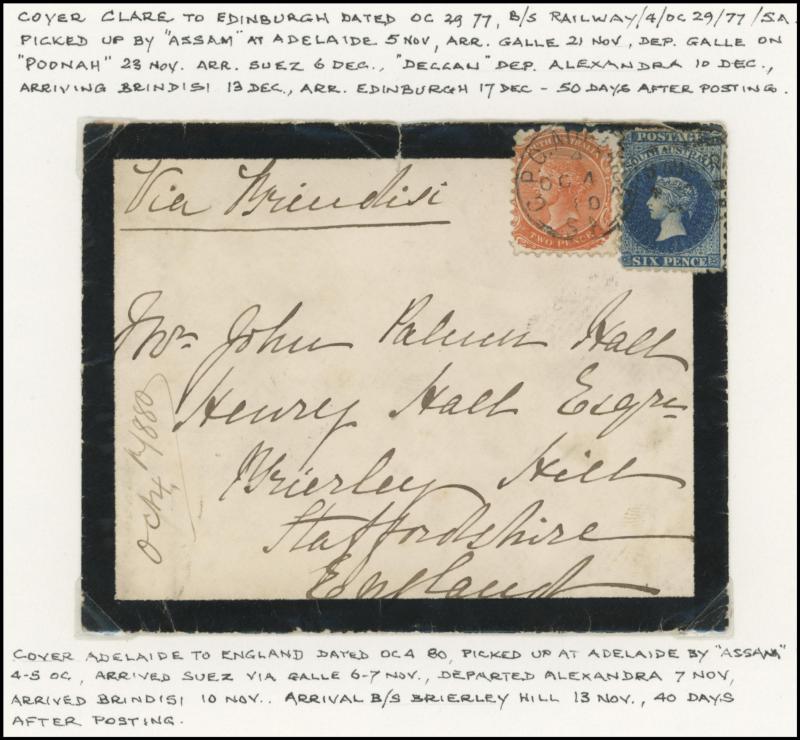 COVER CLARE TO EDINBURGH DATED OC 29 77, B/S RAILWAY/4/OC 29/77/SA
PICKED UP BY "ASSAM" AT ADELAIDE 5 NOV, ARR. GALLE 21 NOV, DEP. GALLE ON
"POONAH" 23 NOV. ARR. SUEZ 6 DEC., "DECCAN" DEP. ALEXANDRA 10 DEC.,
ARRIVING BRINDISI 13 DEC., ARR. EDINBURGH 17 DEC - 50 DAYS AFTER POSTING.
Via Brindisi
G.P.O.
OC 4
80
S.A
TWO PENCE
POSTAGE
SOUTH AUSTRALIA
SIX PENCE
Mr John Palmer Hall
Henry Hall Esqre
Brierley Hill
Staffordshire
England
Oct 4 1880
COVER ADELAIDE TO ENGLAND DATED OC 4 80, PICKED UP AT ADELAIDE BY "ASSAM"
4-5 OC, ARRIVED SUEZ VIA GALLE 6-7 NOV., DEPARTED ALEXANDRA 7 NOV,
ARRIVED BRINDISI 10 NOV.. ARRIVAL B/S BRIERLEY HILL 13 NOV., 40 DAYS
AFTER POSTING.